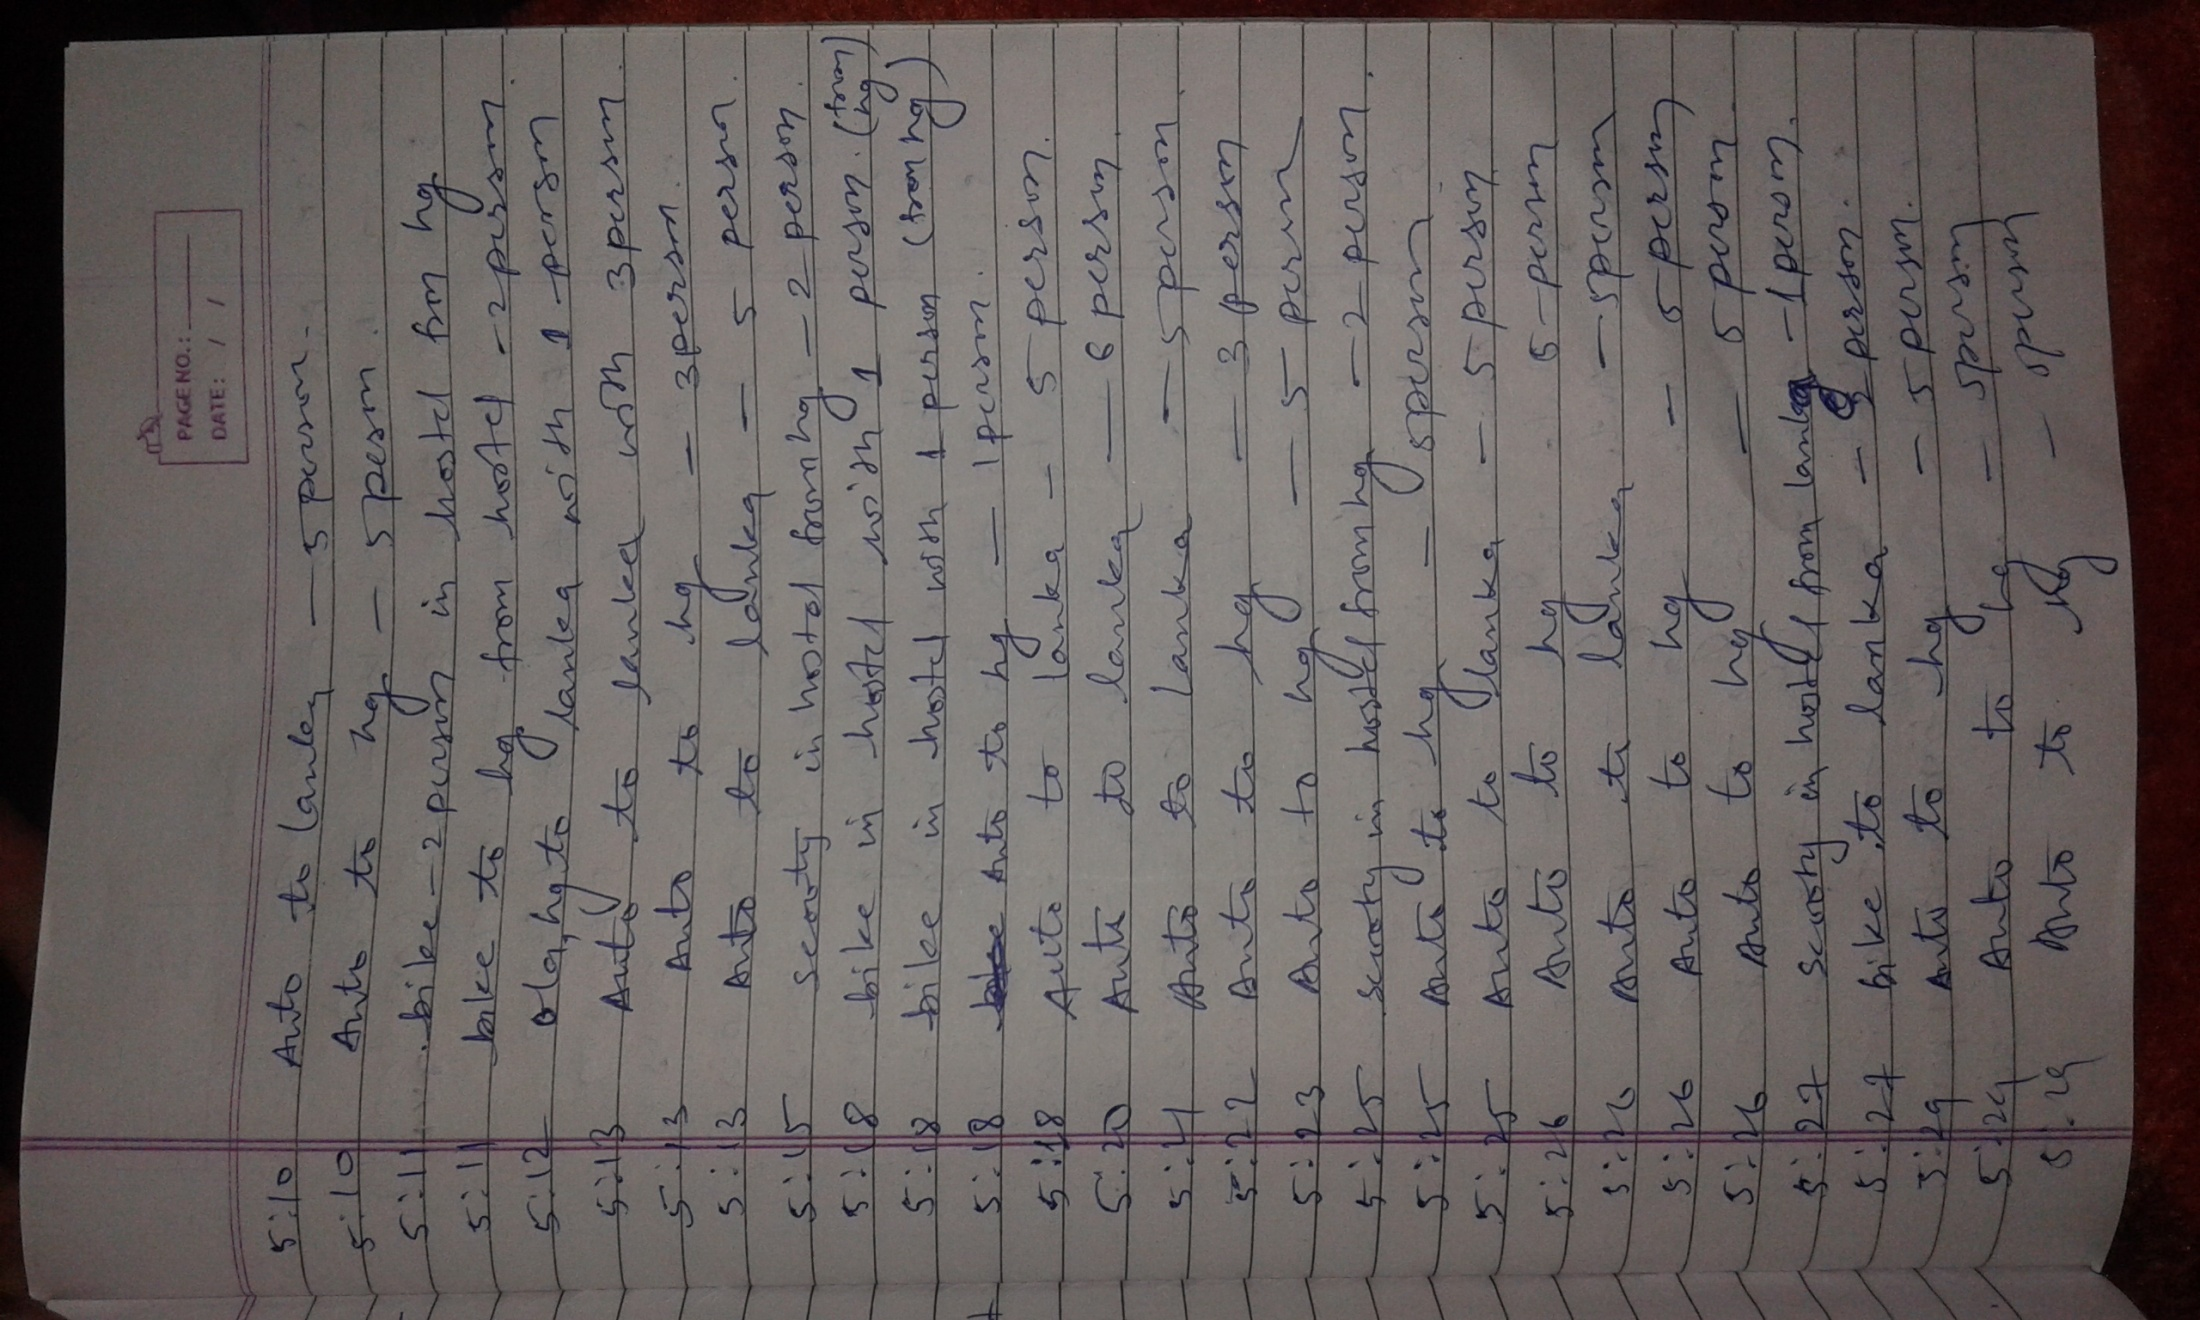 PAGE NO.:
DATE: / /
5:10 Auto to lanka — 5 person.
5:10 Auto to hg — 5 person.
5:11 bike — 2 person in hostel from hg
5:11 bike to hg from hostel - 2 person
5:12 ola, hg to lanka with 1 person
5:13 Auto to lanka with 3 person
5:13 Auto to hg — 3 person.
5:13 Auto to lanka — 5 person.
5:15 scooty in hostel from hg — 2 person.
5:18 bike in hostel with 1 person. (from hg)
5:18 bike in hostel with 1 person (from hg)
5:18 Auto to hg — 1 person.
5:18 Auto to lanka - 5 person.
5:20 Auto to lanka — 6 person
5:21 Auto to lanka — 5 person.
5:22 Auto to hg — 3 person
5:23 Auto to hg — 5 person
5:25 scooty in hostel from hg — 2 person.
5:25 Auto to hg — 5 person
5:25 Auto to lanka — 5 person
5:26 Auto to hg 5 - person
5:26 Auto to lanka — 5 person
5:26 Auto to hg — 5 person
5:26 Auto to hg — 5 person
5:27 scooty in hostel from lanka — 1 person.
5:27 bike to lanka — person.
5:29 Auto to hg — 5 person.
5:29 Auto to hg — 5 person
5:29 Auto to hg — 5 person